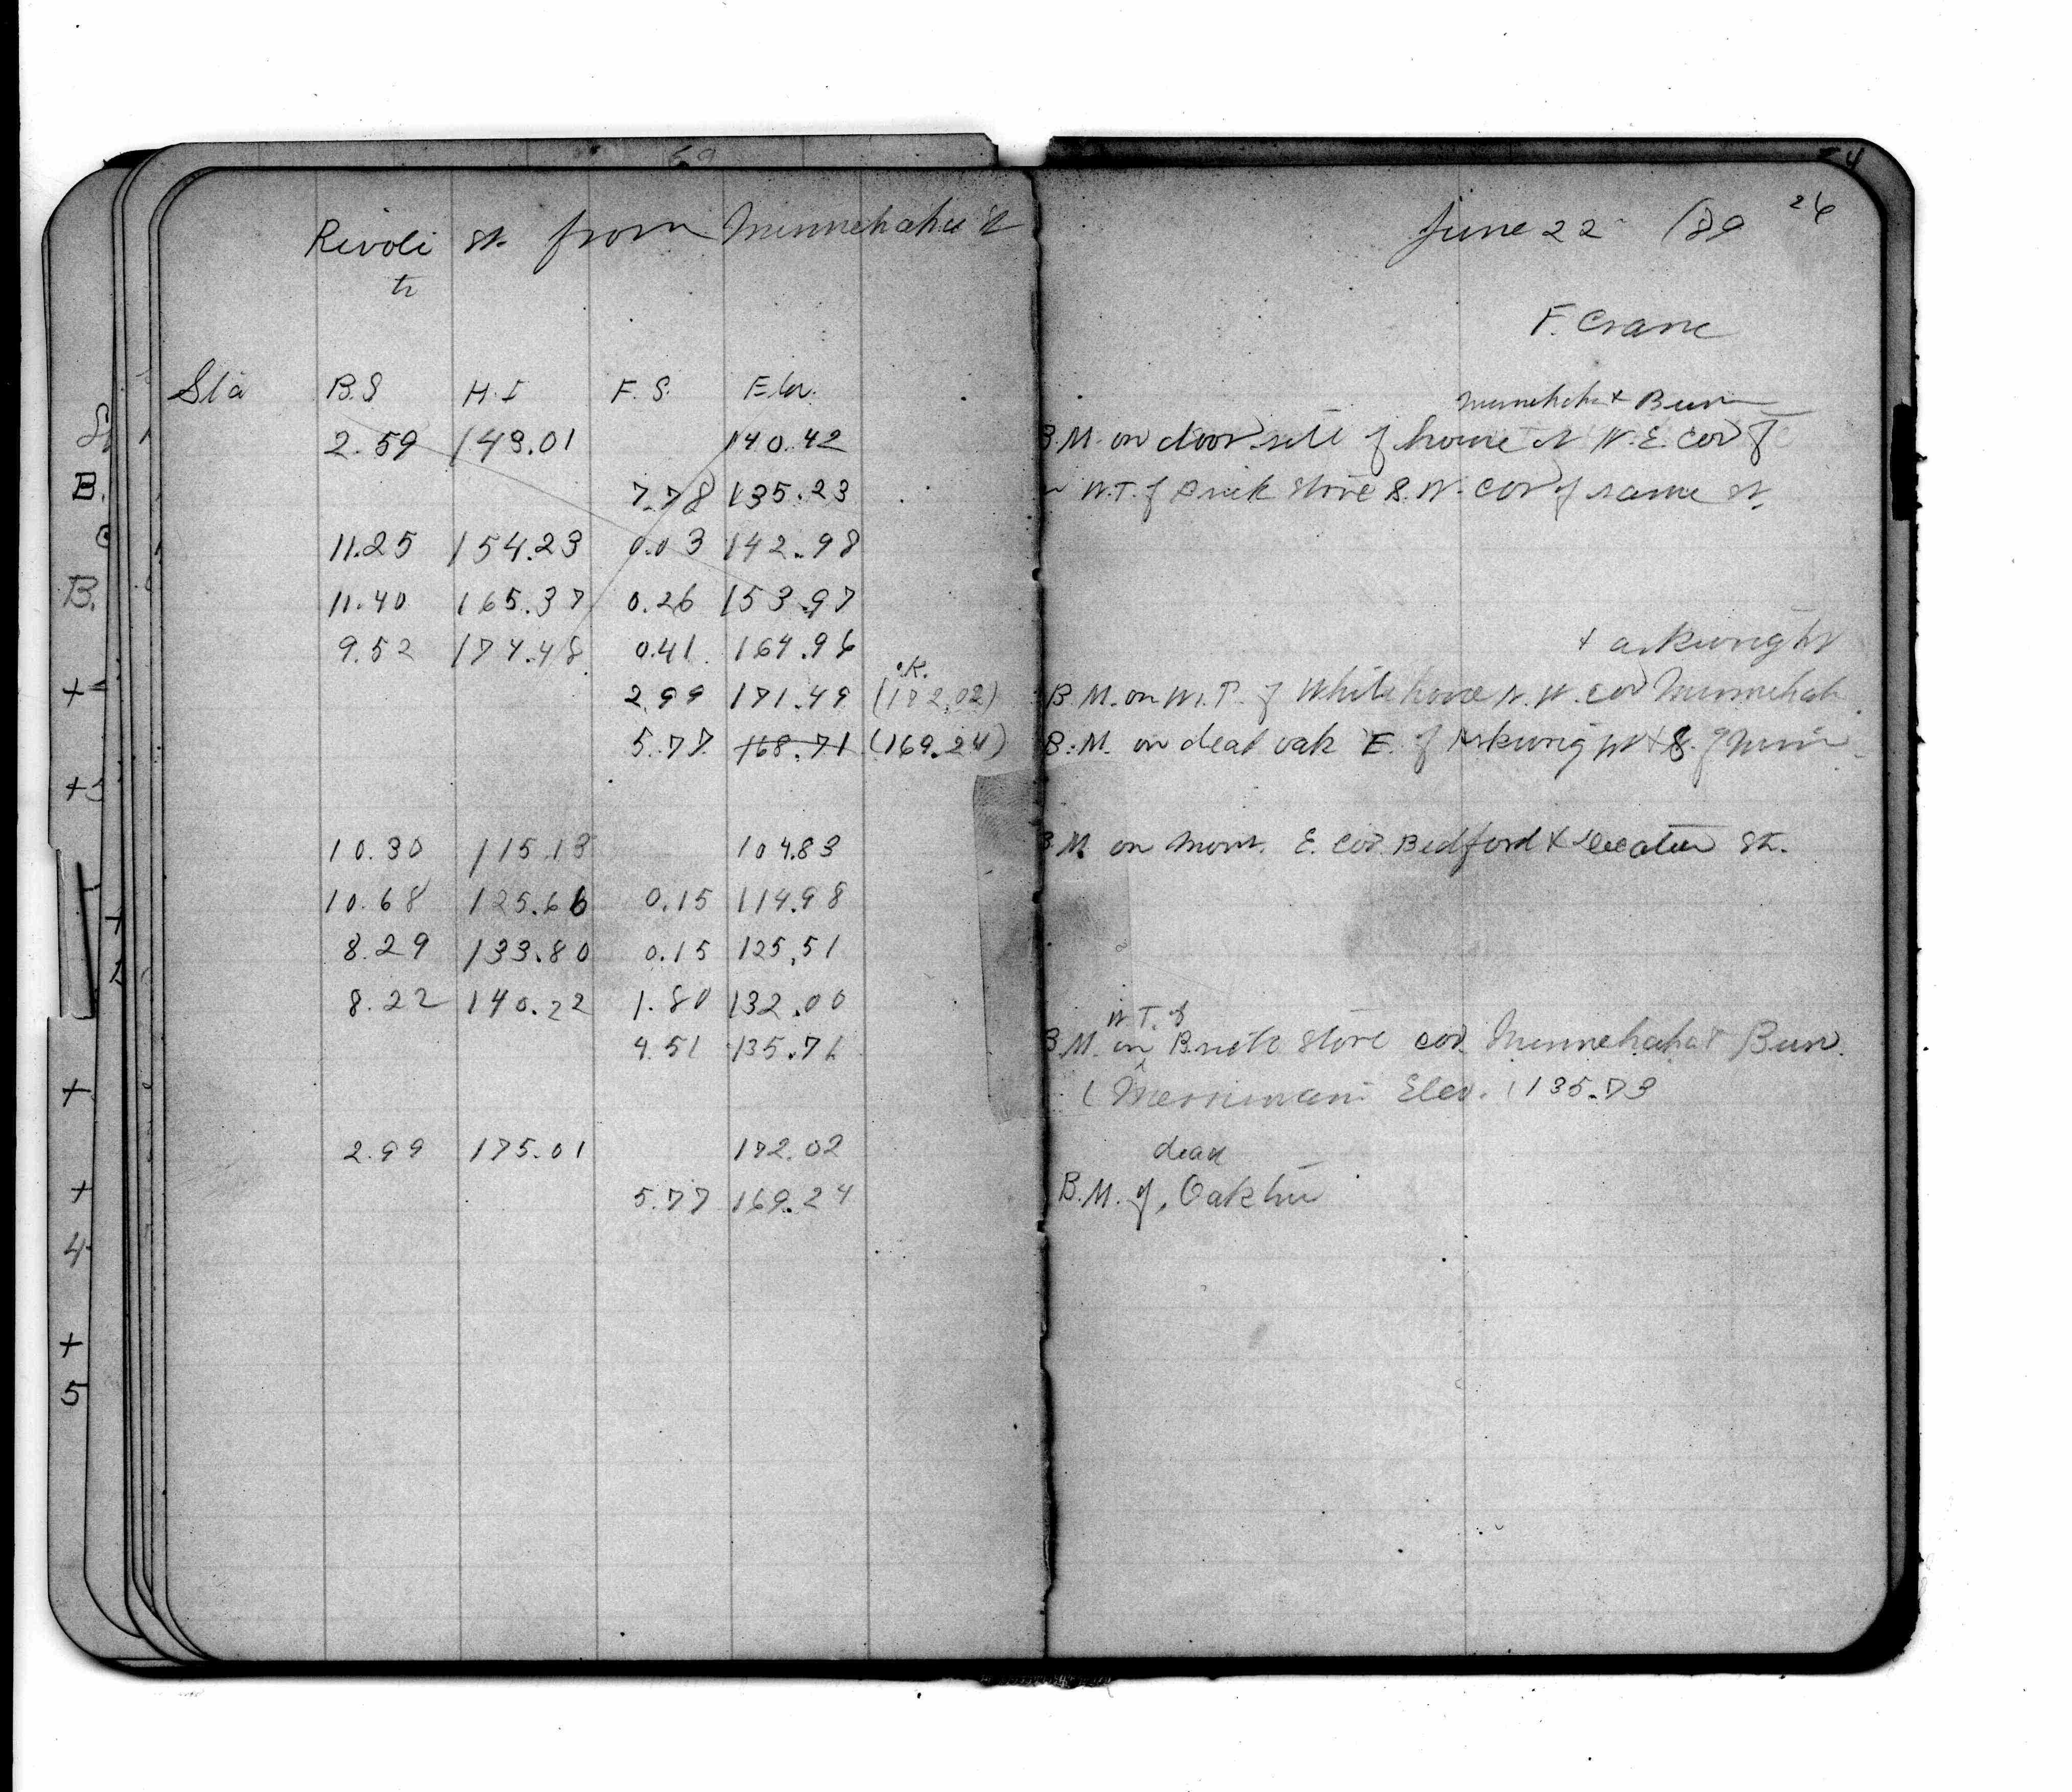 69
24
26
Rivoli St. from Minnehaha St
to
June 22 /89
F. Crane
Sta B.S H.I F.S. Elev.
Minnehaha + Burr
2.59 143.01 140.42 B.M. on door sill of house at N.E. cor of
7.78 135.23 W.T. of Brick Store S.W. cor of same st.
11.25 154.23 0.03 142.98
11.40 165.37 0.26 153.97
9.52 174.48 0.41 164.96
+ arkwright
o.K.
2.99 171.49 (172.02) B.M. on W.T. of White house N.W. cor Minnehah
5.77 168.71 (169.24) B.M. on dead oak E. of Arkwright + S. of Minn
10.30 115.13 104.83 B.M. on Mon. E. cor. Bedford & Decatur St.
10.68 125.66 0.15 114.98
8.29 133.80 0.15 125.51
8.22 140.22 1.80 132.00
W.T. of
4.51 135.71 B.M. on Brick Store cor. Minnehaha + Burr.
( Merriman Elev. (135.73
2.99 175.01 172.02
dead
5.77 169.24 B.M. of Oak tree